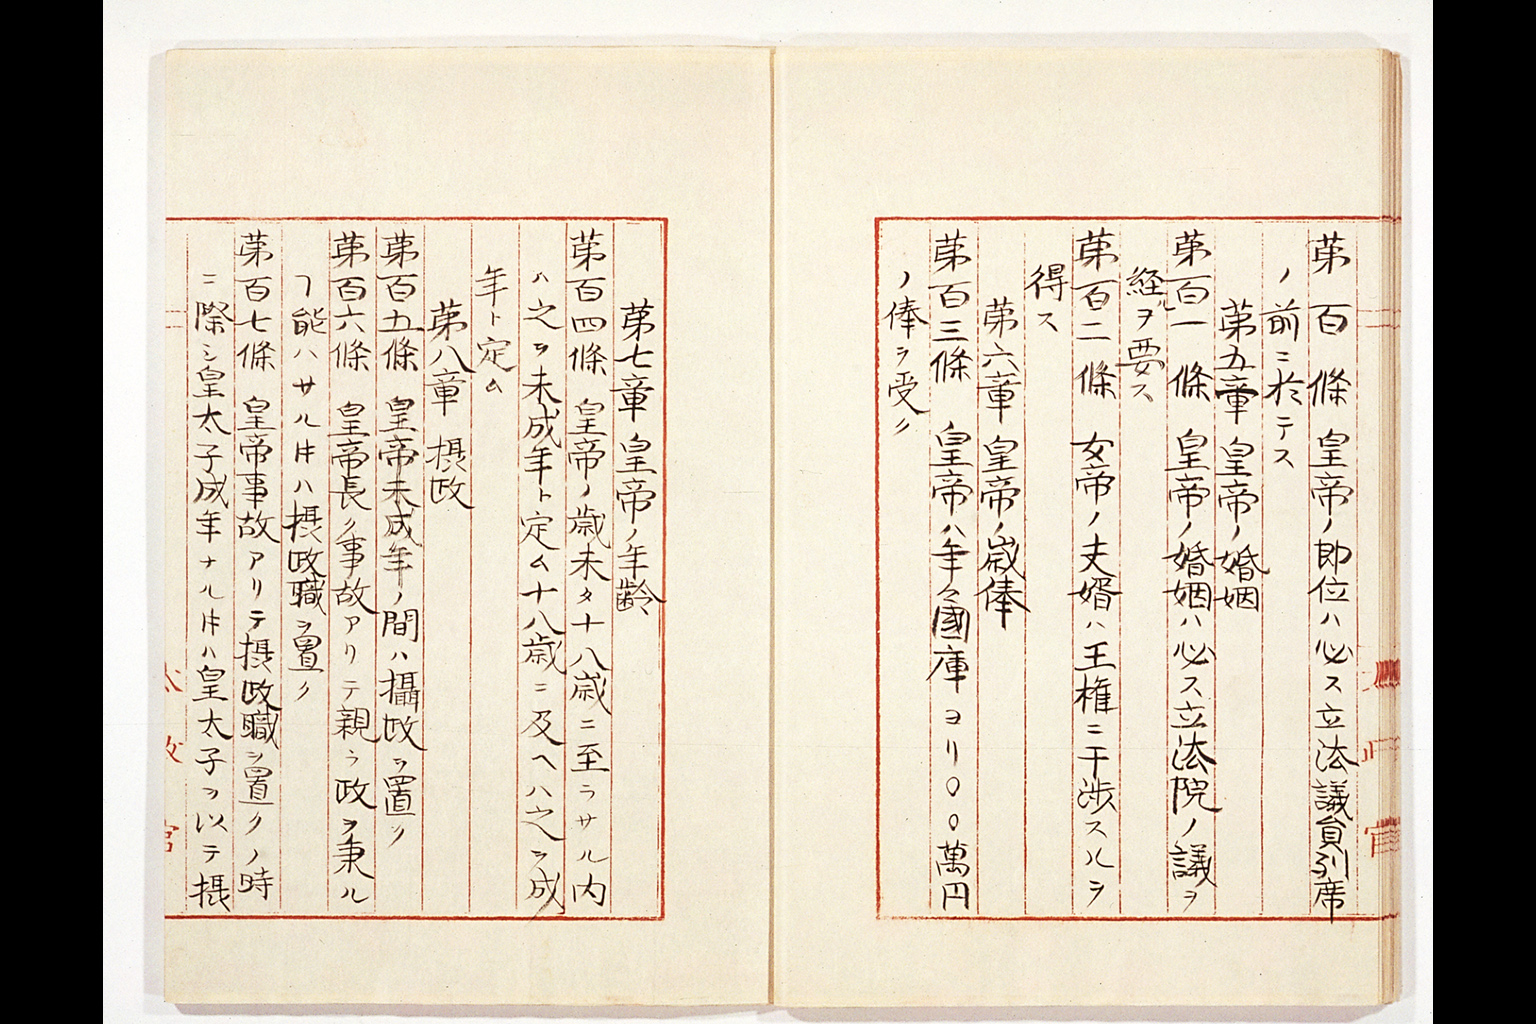 第百條 皇帝ノ即位ハ必ス立法議員列席
ノ前ニ於テス
第五章 皇帝ノ婚姻
第百一條 皇帝ノ婚姻ハ必ス立法院ノ議ヲ
経ルヲ要ス
第百二條 女帝ノ夫婿ハ王権ニ干渉スルヲ
得ス
第六章 皇帝ノ歳俸
第百三條 皇帝ハ年々國庫ヨリ〇〇〇萬円
ノ俸ヲ受ク
第七章 皇帝ノ年齢
第百四條 皇帝ノ歳未タ十八歳ニ至ラサル内
ハ之ヲ未成年ト定ム十八歳ニ及ヘハ之ヲ成
年ト定ム
第八章 摂政
第百五條 皇帝未成年ノ間ハ攝政ヲ置ク
第百六條 皇帝長ク事故アリテ親ラ政ヲ秉ル
フ能ハサル𪜈ハ摂政職ヲ置ク
第百七條 皇帝事故アリテ摂政職ヲ置クノ時
ニ際シ皇太子成年ナル𪜈ハ皇太子ヲ以テ摂
太政官